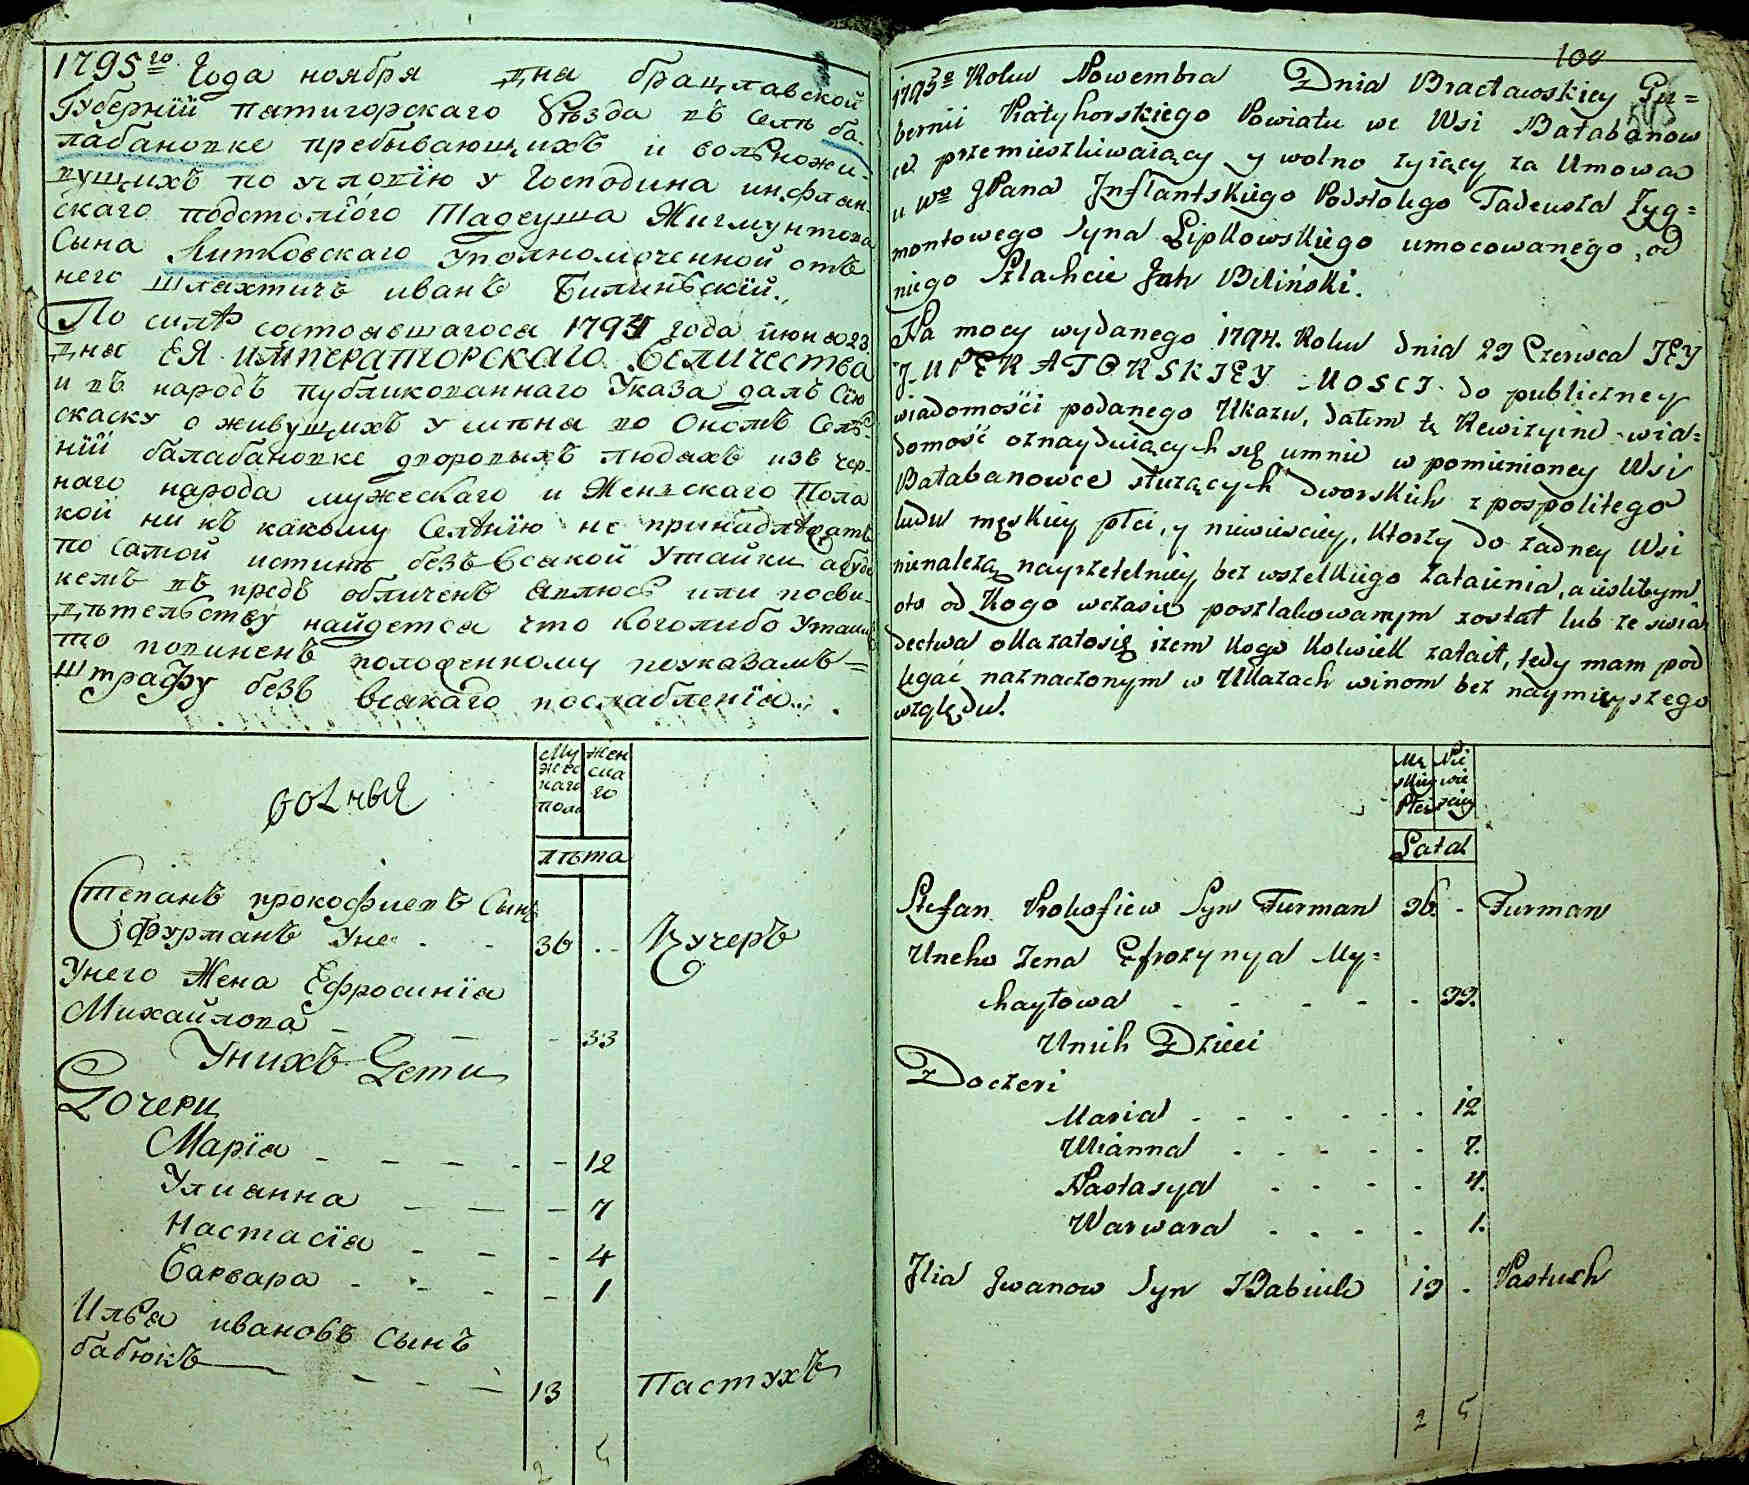 1795го Года ноября дна брацлавской
Губернїи пятигорскаго уѣзда въ селѣ ба-
лабановке пребывающихъ и вольножи-
вущихъ по условїю у Господина инфлан-
скаго подстолїого Тадеуша Жигмунтова
Сына Липковскаго уполномоченной отъ
него шляхтичъ иванъ Билинскїй.
По силѣ состоявшагося 1794 года июня 23
дня ЕЯ императорскаго величества
и въ народъ публикованнаго Указа далъ Сїю
скаску о живущихъ у мѣня во ономъ Селѣ-
нїи балабановке дворовыхъ людяхъ изъ чер-
наго народа мужескаго и Женскаго Пола
кои ни къ какому Селѣнїю не принадлѣжатъ
по самой истинѣ безъ всякой Утайки а буде
кемъ въ предъ обличенъ явлюсь или посви-
дѣтельству найдется что коголибо Утаилъ
то повиненъ положенному поуказамъ
Штрафу безъ всякаго послабленїя.
вольныя
Му
жес
каго
пола
Жен
ска
го
лѣта
Степанъ прокофиевъ Сынъ
Фурманъ 36 Кучеръ
Унего Жена Ефросинїя
Михайлова 33
Унихъ Дети
Дочери
Марїя 12
Улианна 7
Настасїя 4
Варвара 1
Илья ивановъ Сынъ
бабюкъ 13 Пастухъ
2 5
100
1795o Roku Nowembra Dnia Bracławskiey Gu=
bernii Piatyhorskiego Powiatu we Wsi Bałabanow
ce przemieszkiwaiący y wolno zyiący za Umową
u Wo JPana Inflantskiego Podstolego Tadeusza Zyg=
montowego Syna Lipkowskiego umocowanego, od
niego Szlachcic Jan Biliński.
Na mocy wydanego 1794. Roku dnia 23 Czerwca JEY
IMPERATORSKIEY MOSCI do publiczney
wiadomości podanego Ukazu, dałem tę Rewizyiną wia=
domość oznayduiących się umnie w pomienioney Wsi
Bałabanowce służących dworskich z pospolitego
ludu męskiey płci, y niewieściey, Ktorzy do zadney Wsi
nienalezą nayrzetelniey bez wszelkiego zataienia, a iesliby m
oto od Kogo wczasie poszlakowanym został lub ze swia
dectwa okazałosię izem kogo kolwiek zataił, tedy mam pod
legać naznaczonym w Ukazach winom bez naymnieyszego
względu.
Mę
skiey
Płci
Nie
wie
sciey
Lata
Stefan Prokofiew Syn Furman 36 - Furman
Uneho Zena Efrozynya My=
chayłowa 33.
Unich Dzieci
Doczeri
Maria 12
Ulianna 7.
Nastasya 4.
Warwara 1.
Ilia Iwanow Syn Babiuk 13 - Pastuch
2 5